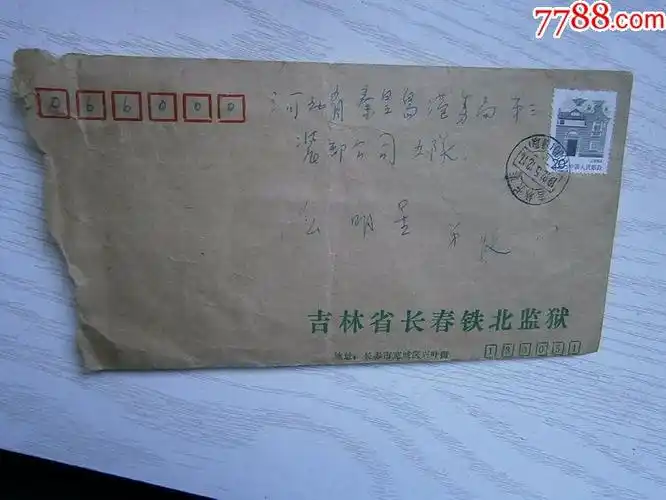 7788.com
066000
河北省秦皇岛港务局第三
装卸公司五队
明星 弟收
吉林省长春铁北监狱
地址：长春市宽城区兴叶街
130051